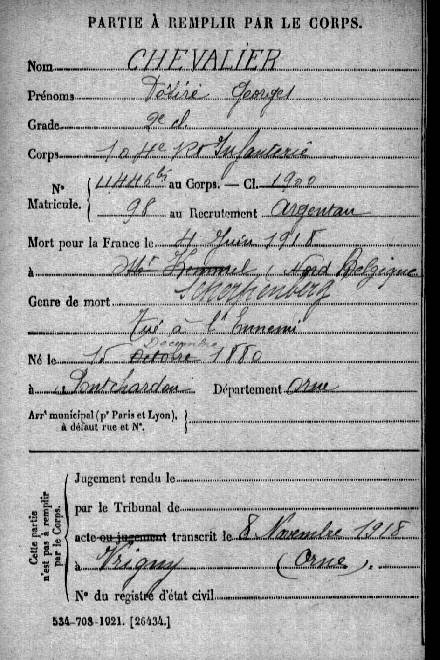 PARTIE À REMPLIR PAR LE CORPS.
Nom CHEVALIER
Prénoms Désiré Georges
Grade 2e cl.
Corps 104e Rt Infanterie
N° Matricule. { 4446bis au Corps. — Cl. 1900
98 au Recrutement Argentan
Mort pour la France le 4 Juin 1918
à Mt Kemmel (Nord Belgique
Scherpenberg
Genre de mort
Tué à l'Ennemi
Décembre
Né le 15 Octobre 1880
à Pontchardon Département Orne
Arrt municipal (pr Paris et Lyon), à défaut rue et N°.
Cette partie n'est pas à remplir par le Corps.
Jugement rendu le
par le Tribunal de
acte ou jugement transcrit le 8 Novembre 1918
à Vrigny (Orne).
N° du registre d'état civil
534-708-1021. [26434.]